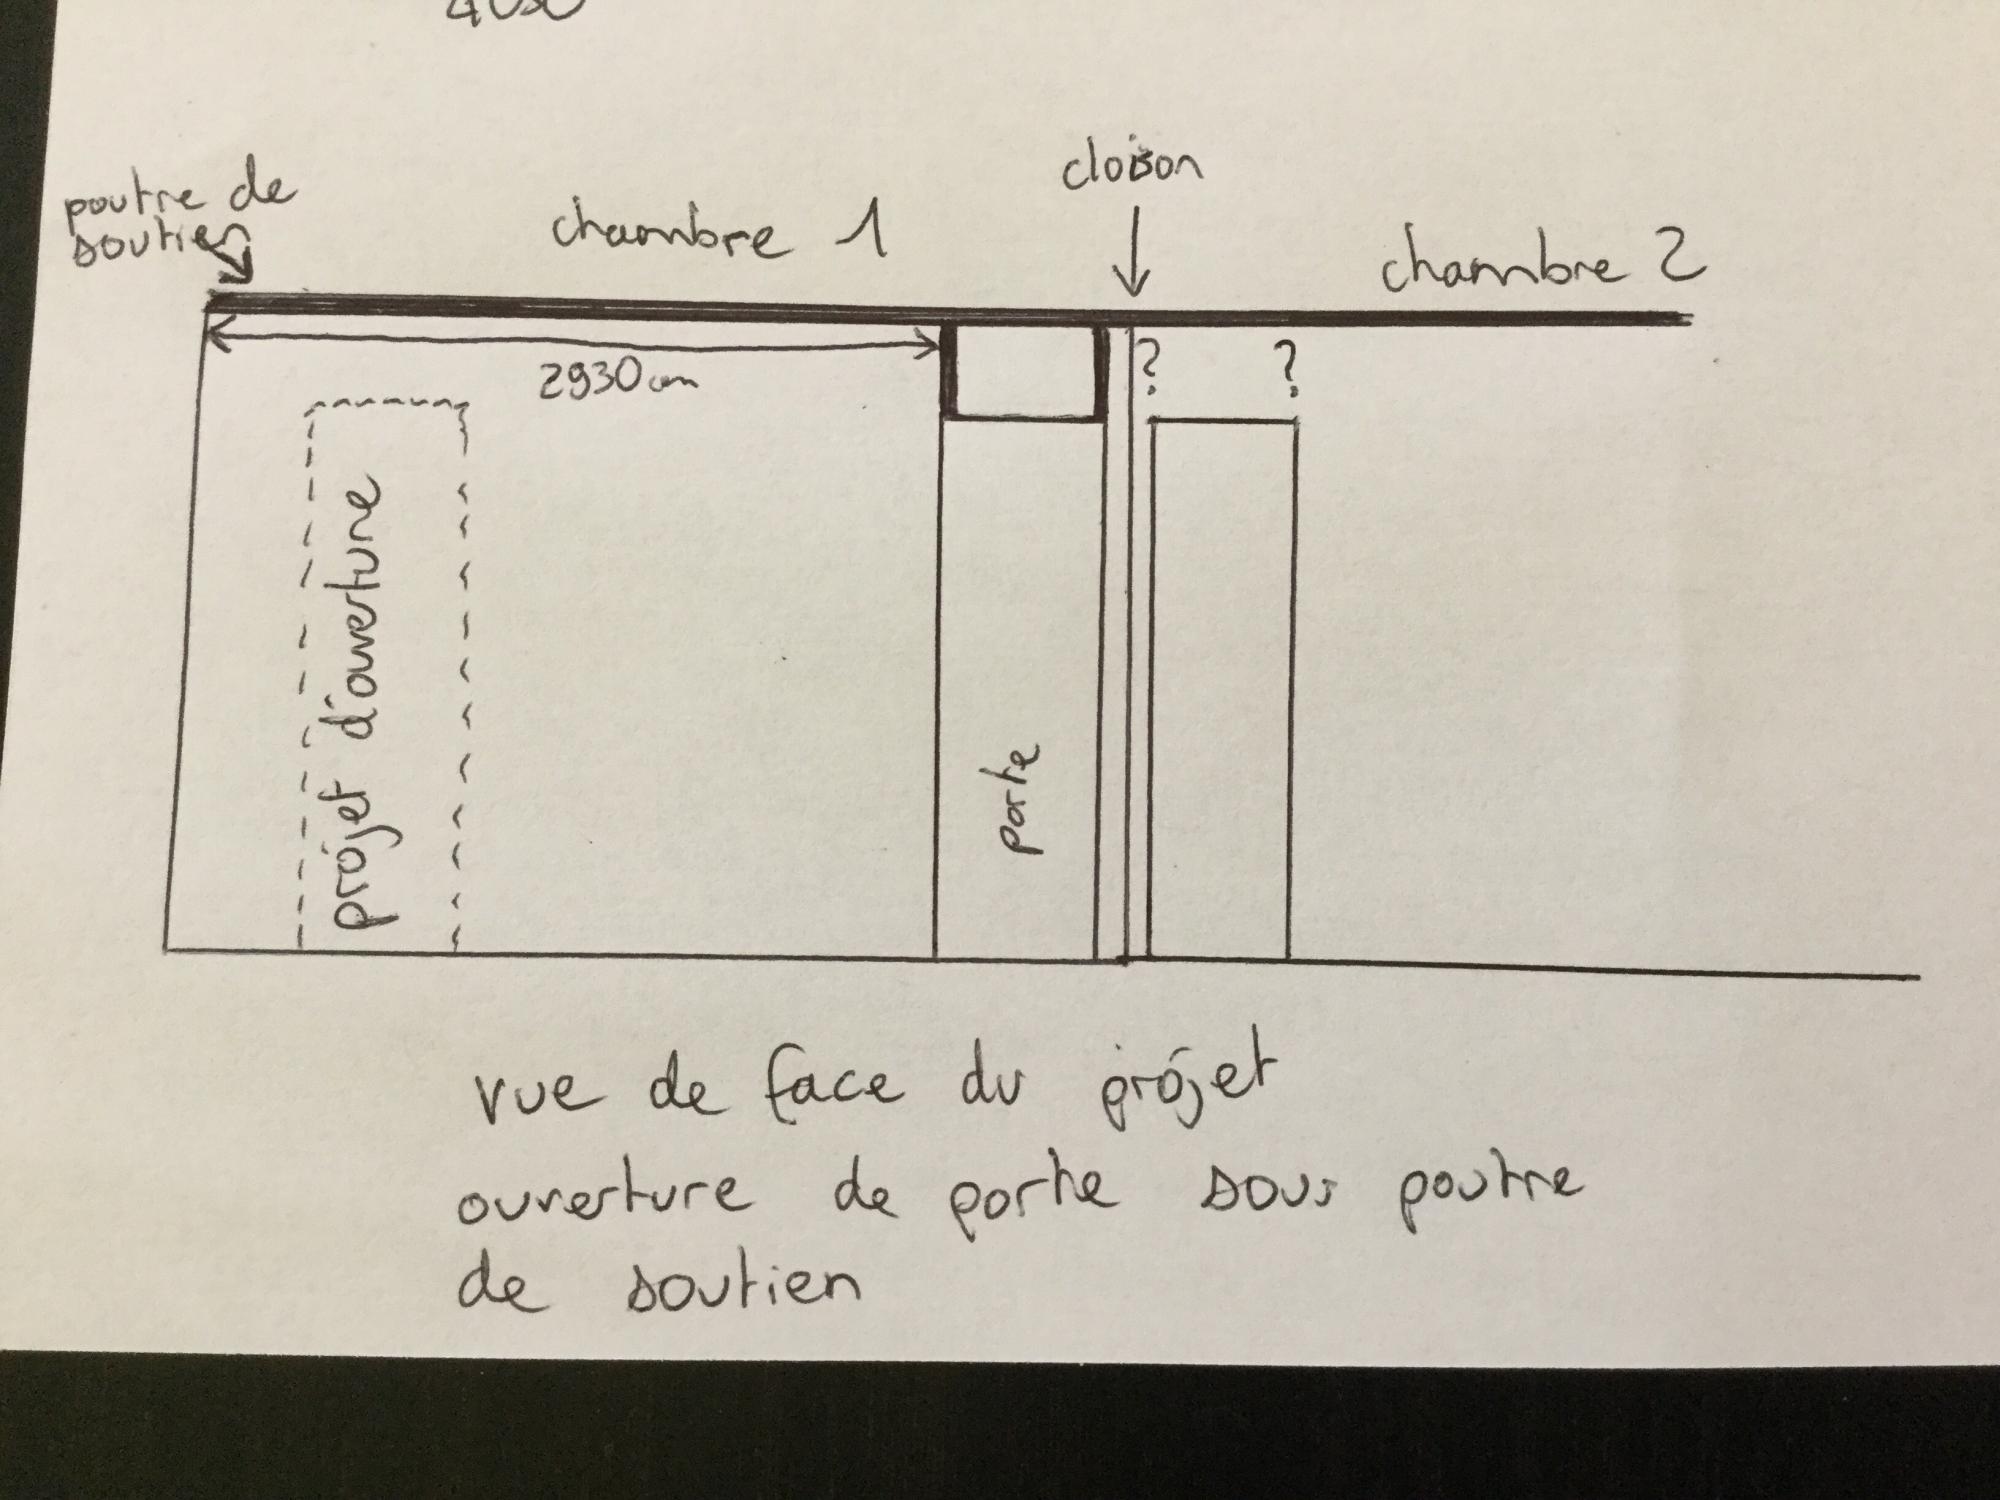 poutre de
soutien
chambre 1
cloison
chambre 2
2930 cm
?
?
projet d'ouverture
porte
vue de face du projet
ouverture de porte sous poutre
de soutien